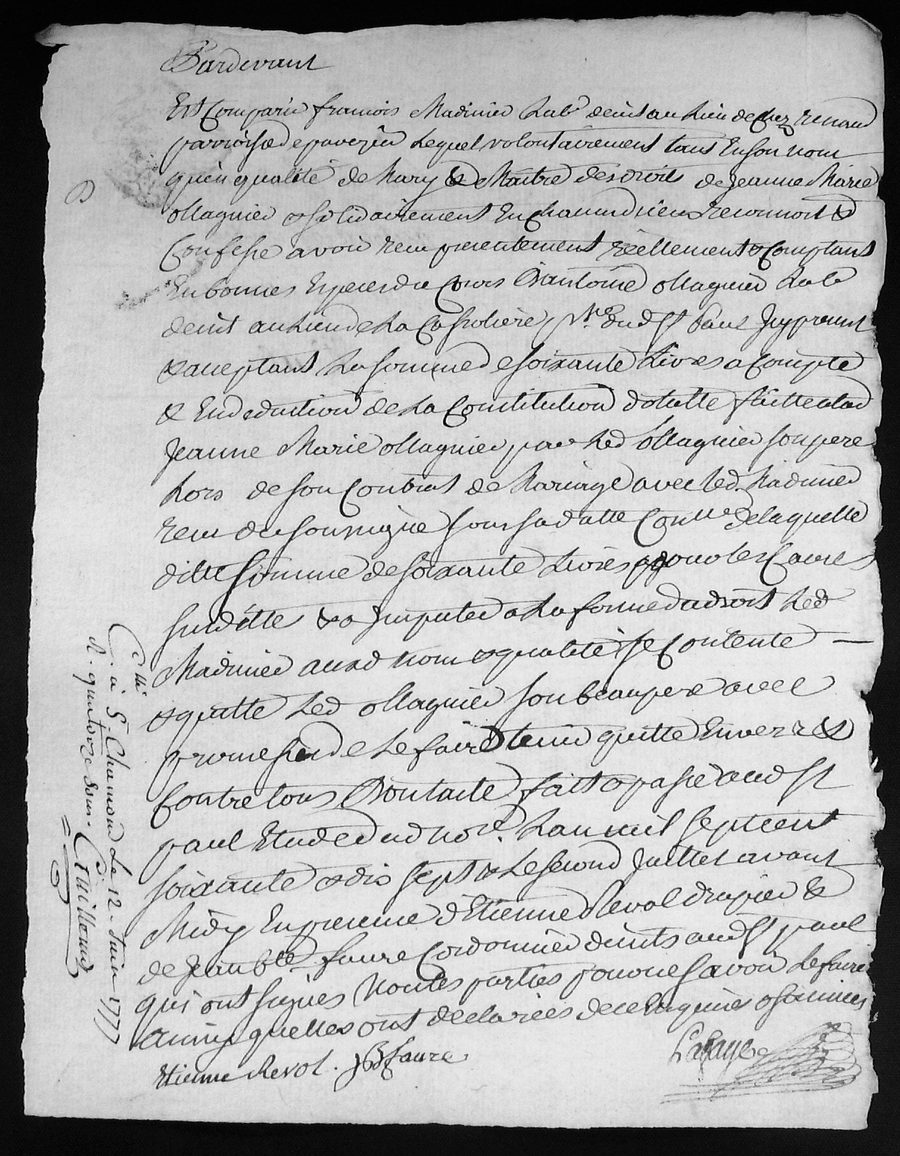 Pardevant
Est Comparu francois Madinier Lab.r de cit au Lieu de chez renaud
parroisse de pavezin Lequel volontairement tant En son nom
qu'en qualité de Mary & Maitre des droit de Jeanne Marie
ollagnier & solidairement reconnoit &
Confesse avoir recu presentement réellement & Comptant
En bonnes Especes du Cours D'antoine ollagnier Lab.r
de cit au Lieu de La st paul Icy present
& acceptant La somme de soixante Livres a Compte
& En deduction de La Constitution dotalle faitte a lad
Jeanne Marie ollagnier par Led ollagnier son pere
Lors de son Contrat de Mariage avec led. Madinier
recu du soussigné sous sa datte de laquelle
ditte somme de soixante Livres pour les Causes
susditte & a Imputer a La forme du droit Led
Madinier aud nom & qualité se Contente
& quitte Led ollagnier son beaupere avec
promesse de Le faire tenir quitte Envers &
Contre tous Dont acte fait & passé aud st
paul Etude dud no.re L'an mil sept cent
soixante & dix sept & Le second Juillet avant
Midy En presence d'Etienne Revol drapier &
de Jean b.te faure Cordonnier de cits aud st paul
qui ont signés Non les parties pour ne savoir Le faire
ainsy quelles ont declarées de ce Enquises & sommées
Etienne Revol. JB faure
Lafaye
C.llé à St. Chamond Le 12 1777
R. quatorze sous